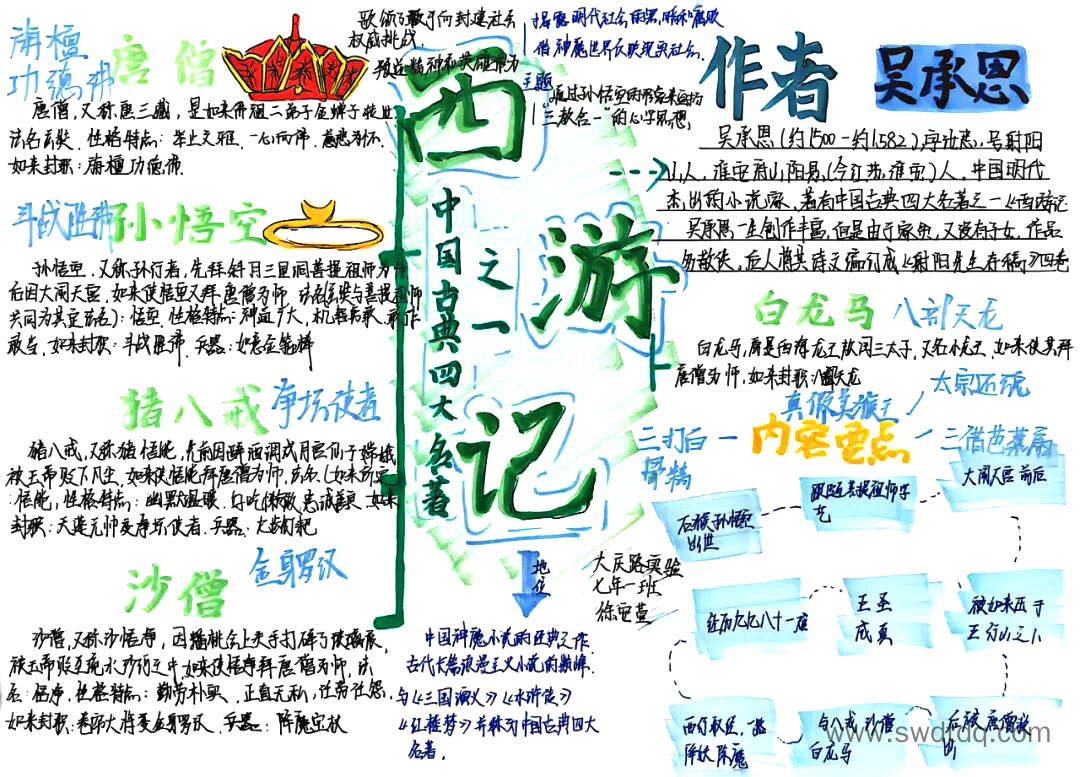 旃檀
功德佛
唐僧
唐僧，又称唐三藏，是如来佛祖二弟子金蝉子转世
法名玄奘，性格特点：举止文雅，一心向佛，慈悲为怀，
如来封职：旃檀功德佛.
斗战胜佛
孙悟空
孙悟空，又称孙行者，先拜斜月三星洞菩提祖师为师
后因大闹天宫，如来使悟空又拜唐僧为师，
共同为其定法名）：悟空，性格特点：神通广大，机智勇敢，敢作
敢当，如来封职：斗战胜佛，兵器：如意金箍棒
猪八戒
净坛使者
猪八戒，又称猪悟能，先前因醉酒调戏月宫仙子嫦娥
被玉帝贬下凡尘，如来使悟能拜唐僧为师，法名（如来所定
：悟能，性格特点：幽默温暖，好吃懒做，忠诚善良，如来
封职：天蓬元帅净坛使者，兵器：九齿钉耙
沙僧
金身罗汉
沙僧，又称沙悟净，因蟠桃会上失手打碎了玻璃盏，
被玉帝贬至流水沙河之中，如来使悟净拜唐僧为师，法
名：悟净，性格特点：勤劳朴实，正直无私，任劳任怨，
如来封职：卷帘大将金身罗汉，兵器：降魔宝杖
歌颂了敢于向封建社会
权威挑战，
精神和英雄行为
揭露明代社会的黑暗和腐败
借神魔世界反映现实社会.
主题
通过孙悟空的形象来宣扬
“三教合一”的心学思想，
西
游
记
中国古典四大名著
之一
地位
中国神魔小说的经典之作
古代长篇浪漫主义小说的巅峰.
与《三国演义》《水浒传》
《红楼梦》并称为中国古典四大
名著。
大庆路实验
七年一班
作者
吴承思
吴承思（约1500－约1582），字汝忠，号射阳
山人，淮安府山阳县，（今江苏，淮安）人，中国明代
杰出的小说家，著有中国古典四大名著之一《西游记
吴承思一生创作丰富，但是由于家贫，又没有子女，作品
多散失，后人将其诗文编订成《射阳先生存稿》四卷
白龙马
八部天龙
白龙马，原是西海龙王敖闰三太子，又名小龙王，如来使其拜
唐僧为师，如来封职：八部天龙
太宗还魂
真假美猴王
三打白
骨精
内容重点
三借芭蕉扇
石猴孙悟空
出世
跟随菩提祖师学
艺
大闹天宫前后
被如来压于
五行山之下
后被唐僧救
出
与八戒，沙僧
白龙马
西行取经，一路
降妖除魔
经历九九八十一难
成真
www.swdtdq.com